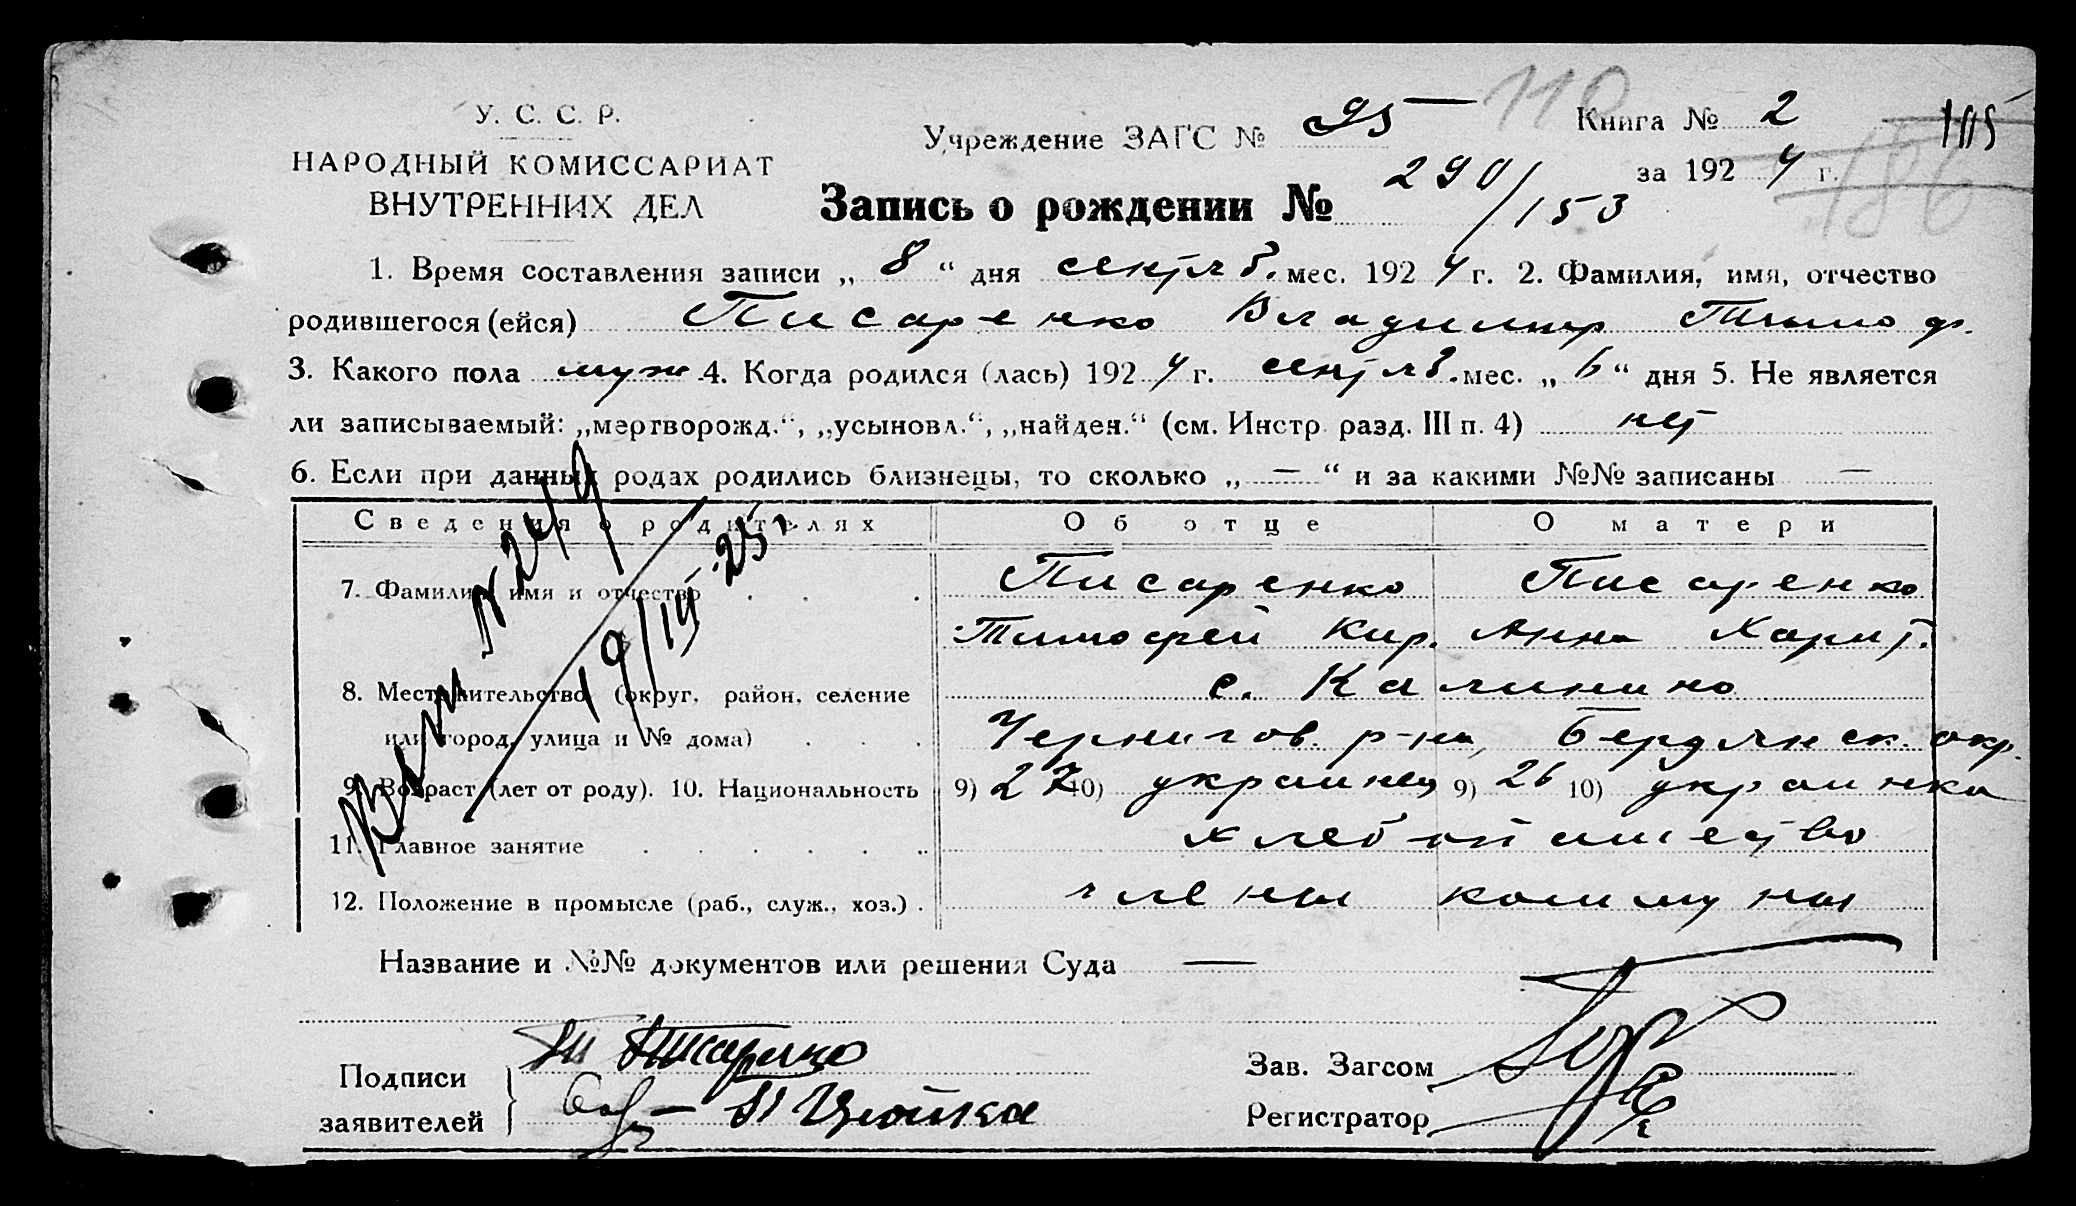 У. С. С. Р.
НАРОДНЫЙ КОМИССАРИАТ
ВНУТРЕННИХ ДЕЛ
Учреждение ЗАГС № 95
110
Книга № 2
105
за 1924 г.
186
Запись о рождении № 290/153
1. Время составления записи „ 8 “ дня сентяб. мес. 1924 г. 2. Фамилия, имя, отчество
родившегося (ейся) Писаренко Владимир Тимоф.
3. Какого пола муж 4. Когда родился (лась) 1924 г. сентяб. мес. „ 6 “ дня 5. Не является
ли записываемый: „мертворожд.“, „усыновл.“, „найден.“ (см. Инстр. разд. III п. 4) нет
6. Если при данных родах родились близнецы, то сколько „ — “ и за какими №№ записаны —
Сведения о родителях Об отце О матери
7. Фамилия, имя и отчество . . . Писаренко Писаренко
Тимофей Кир. Анна Харит.
8. Местожительство (округ, район, селение с. Калинино
или город, улица и № дома) . . . Чернигов. р-на, Бердянск. окр.
9. Возраст (лет от роду). 10. Национальность 9) 27 10) украинец 9) 26 10) украинка
11. Главное занятие . . . . . . хлебопашество
12. Положение в промысле (раб., служ., хоз.) . члены коммуны
19/IV 25.
Название и №№ документов или решения Суда —
Подписи
заявителей
Т Писаренко
Зав. Загсом
Регистратор